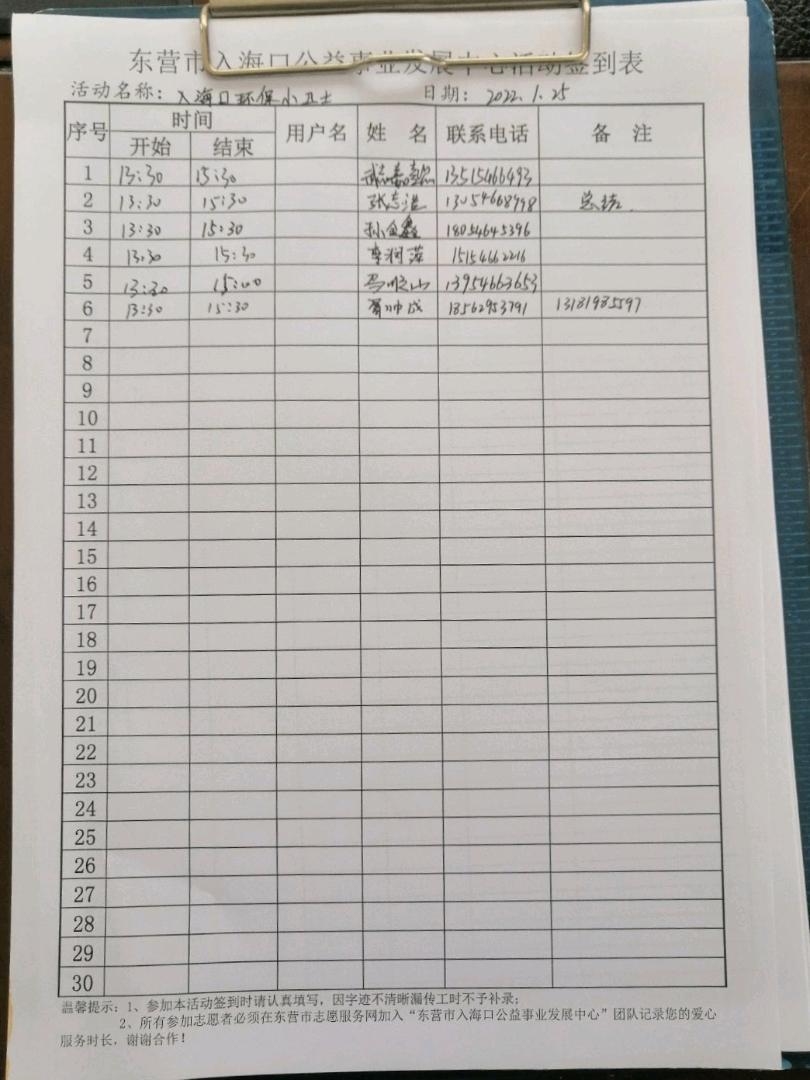 东营市入海口公益事业发展中心活动签到表
活动名称：入海口环保小卫士 日期：2022.1.25
序号 时间 用户名 姓 名 联系电话 备 注
开始 结束
1 13:30 15:30 13515466493
2 13:30 15:30 张志浩 13054668998 总结.
3 13:30 15:30 孙金鑫 18054645396
4 13:30 15:30 李润萍 15154662216
5 13:30 15:00 13954663653
6 13:30 15:30 胥帅成 18562953791 13181985597
7
8
9
10
11
12
13
14
15
16
17
18
19
20
21
22
23
24
25
26
27
28
29
30
温馨提示：1、参加本活动签到时请认真填写，因字迹不清晰漏传工时不予补录；
2、所有参加志愿者必须在东营市志愿服务网加入“东营市入海口公益事业发展中心”团队记录您的爱心
服务时长，谢谢合作！